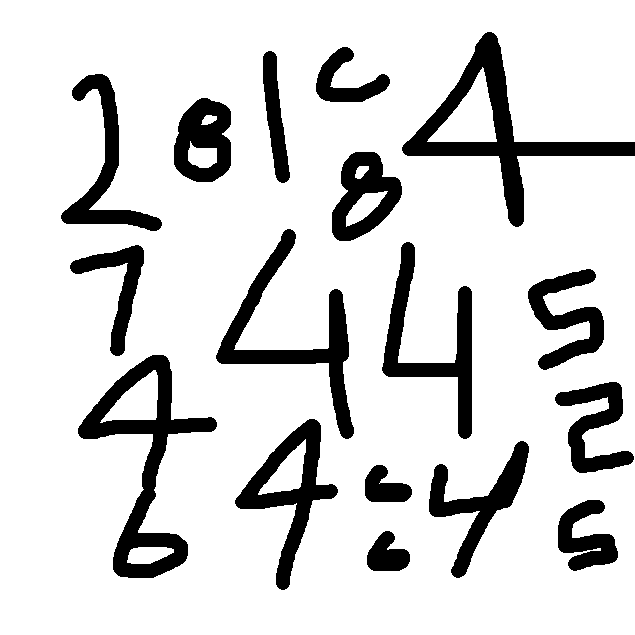 2 8 1 c 4
8
7 4 4 5
4 2
6 4 4 5